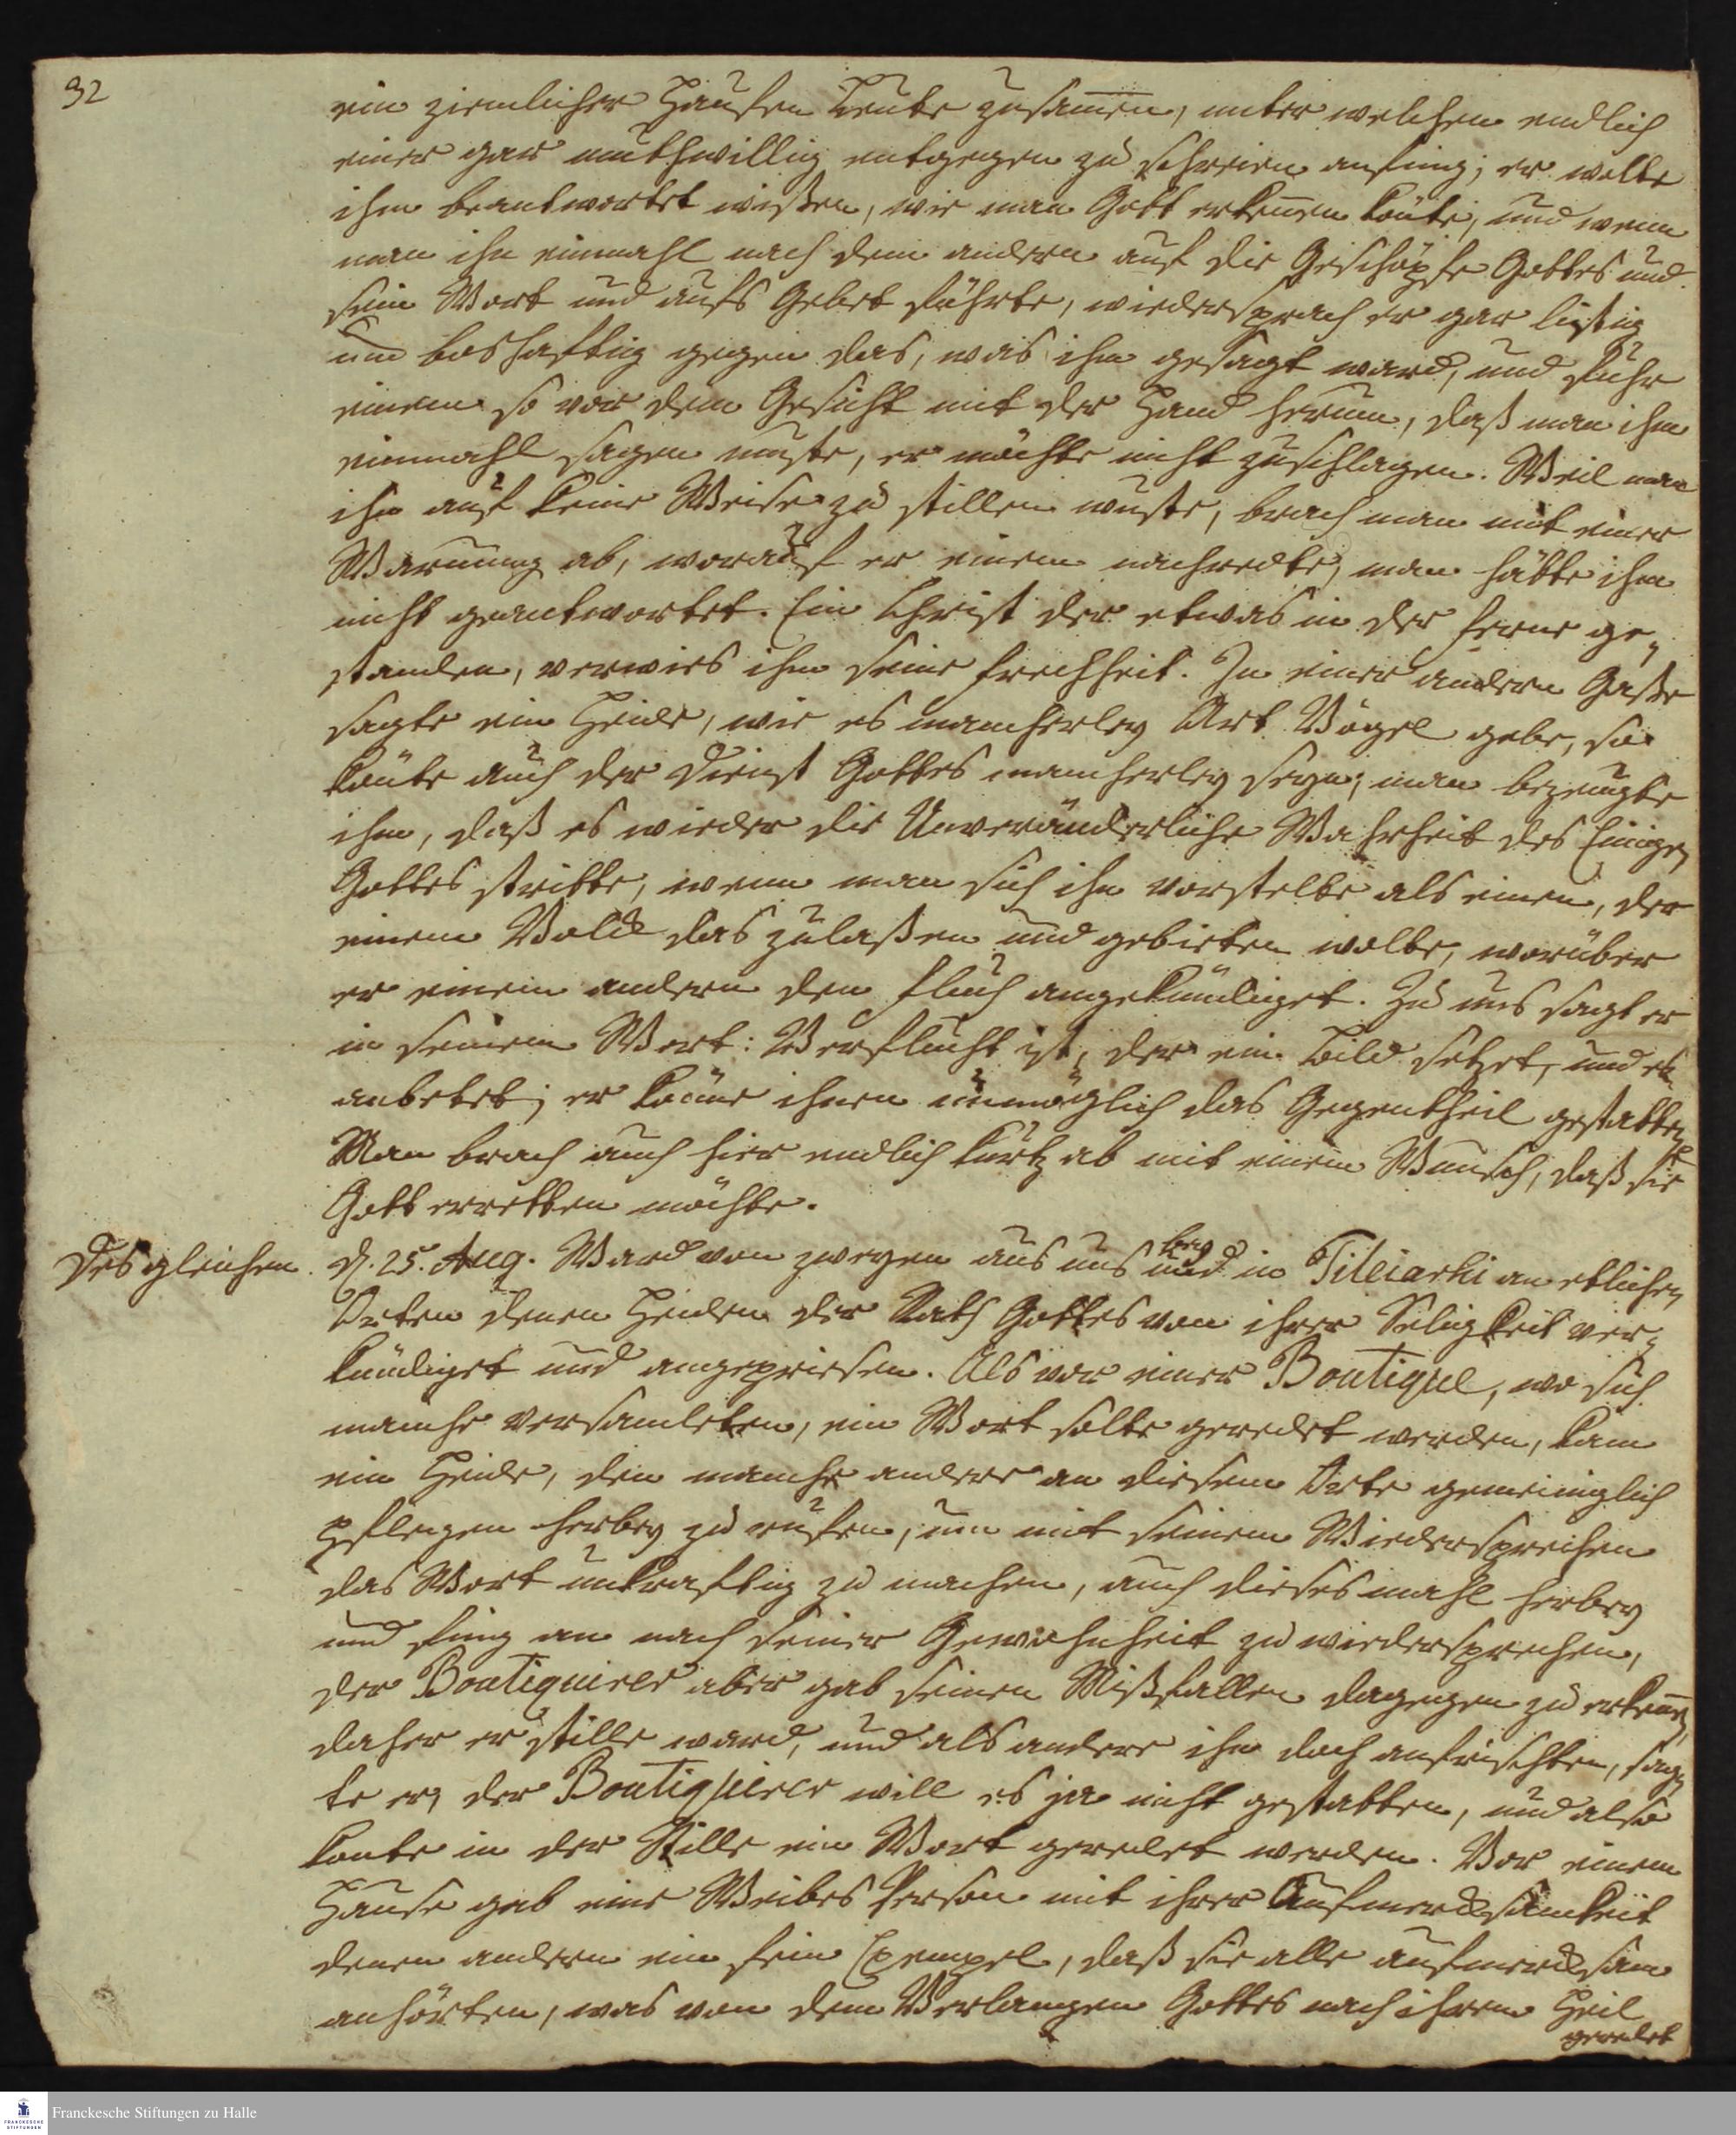 32
ein ziemlicher Haufen Leute zusamen, unter welchen endlich
einer gar muthwillig entgegen zu schreien anfing; er wolte
ihm beantwortet wißen, wie man Gott erkennen könte; und wenn
man ihn einmahl nach dem andern auf die Geschöpfe Gottes und
sein Wort und aufs Gebet führte, wiedersprach er gar listig
und boshafftig gegen das, was ihm gesagt ward, und fuhr
einem so vor dem Gesicht mit der Hand herum, daß man ihm
einmahl sagen muste, er möchte nicht zuschlagen. Weil man
ihn auf keine Weise zu stillen wuste, brach man mit einer
Warnung ab, worauf er einem nachredte, man hätte ihm
nicht geantwortet. Ein Christ der etwas in der ferne ge¬
standen, verwies ihm seine frechheit. In einer andern Gaße
sagte ein Heide, wie es mancherley Art Vögel gebe, so
könte auch der Dienst Gottes mancherley seyn; man bezeugte
ihm, daß es wieder die Unveränderliche Wahrheit des Einigen
Gottes stritte, wenn man sich ihn vorstelte als einen, der
einem Volck das zulaßen und gebieten wolte, worüber
er einem andern den fluch angekündiget. Zu uns sagt er
in seinem Wort: Verflucht ist, der ein Bild setzet, und es
anbetet; er könne ihnen unmöglich das Gegentheil gestatten.
Man brach auch hier endlich kurtz ab mit einem Wunsch, daß sie
Gott erretten möchte.
Desgleichen. d. 25. Aug. Ward von zweyen aus uns bey und in Tileiarhi an etlichen
Orten denen Heiden der Rath Gottes von ihrer Seligkeit ver¬
kündiget und angepriesen. Als vor einer Boutique, wo sich
manche versamleten, ein Wort solte geredet werden, kam
ein Heide, den manche andere an diesem Orte gemeiniglich
pflegen herbey zu rufen, um mit seinem Wiedersprechen
das Wort unkrafftig zu machen, auch dieses mahl herbey
und fing an nach seiner Gewohnheit zu wiedersprechen,
der Boutiquier aber gab seinen Mißfallen dagegen zu erkennen,
daher er stille ward, und als andere ihn doch anfrischten, sag¬
te er, der Boutiquier will es ja nicht gestatten, und also
konte in der Stille ein Wort geredet werden. Vor einem
Hause gab eine Weibes Person mit ihrer Aufmercksamkeit
denen andern ein fein Exempel, daß sie alle aufmercksam
anhörten, was von dem Verlangen Gottes nach ihrem Heil
geredet
FRANCKESCHE STIFTUNGEN
Franckesche Stiftungen zu Halle